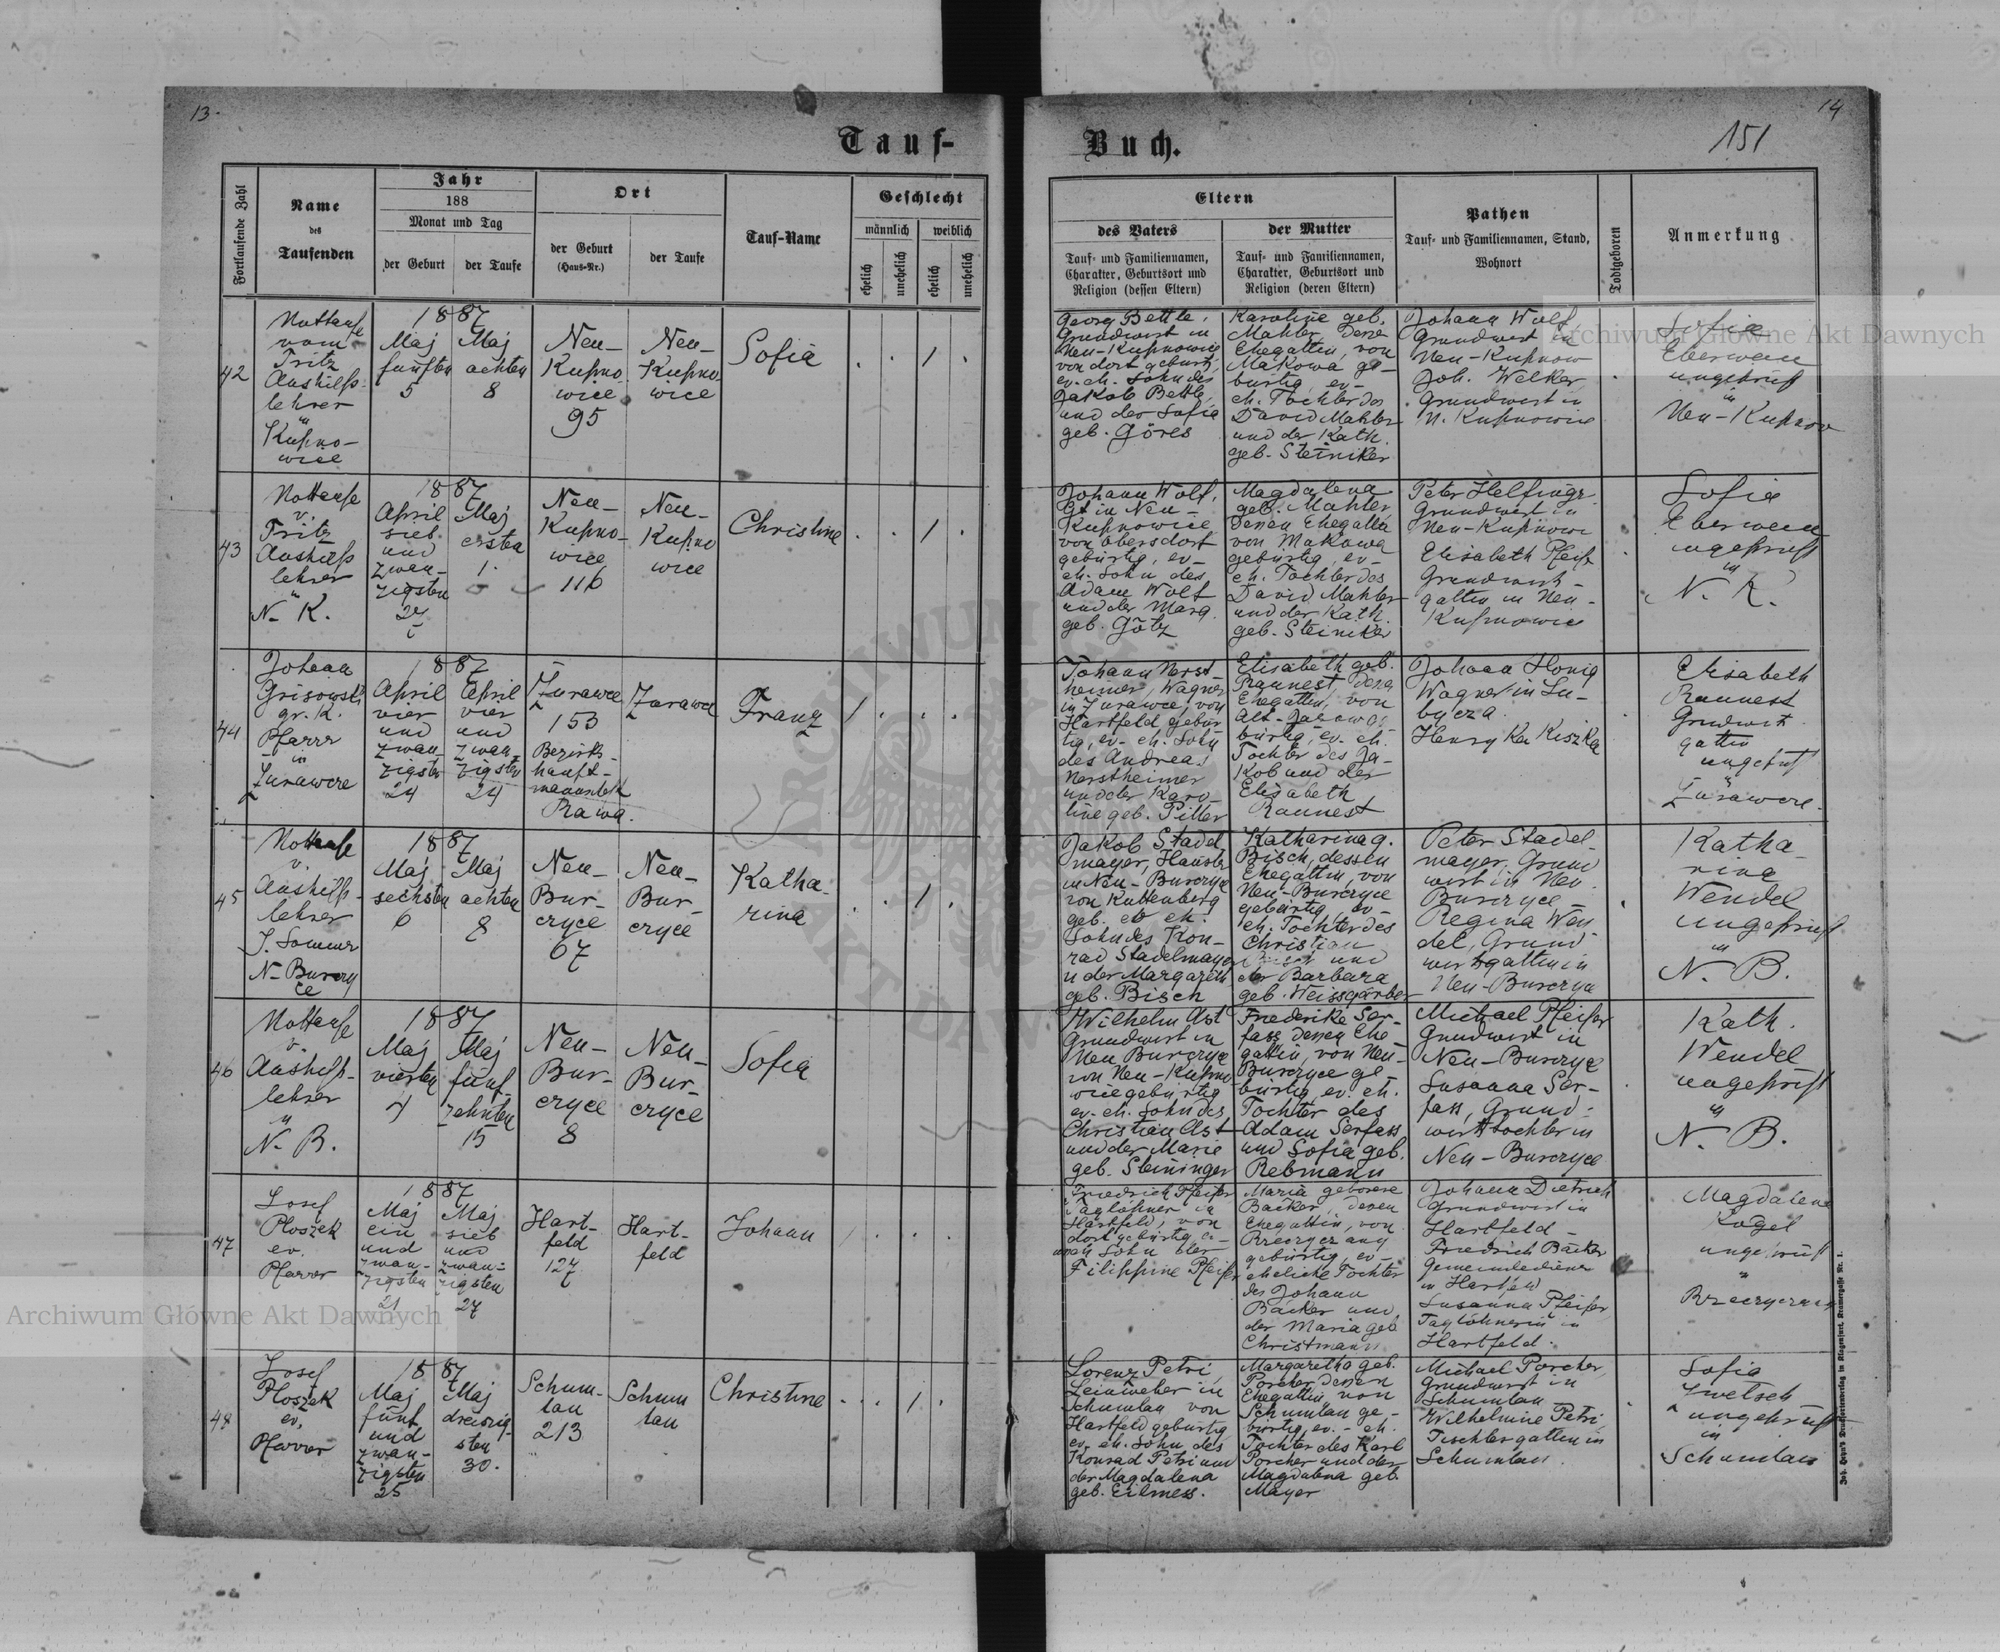 13.
14
151
Tauf-
Buch.
Fortlaufende Zahl
Name
des
Taufenden
Jahr
188
Monat und Tag
der Geburt
der Taufe
Ort
der Geburt
(Haus-Nr.)
der Taufe
Tauf-Name
Geschlecht
männlich
weiblich
ehelich
unehelich
ehelich
unehelich
Eltern
des Vaters
Tauf- und Familiennamen,
Charakter, Geburtsort und
Religion (dessen Eltern)
der Mutter
Tauf- und Familiennamen,
Charakter, Geburtsort und
Religion (deren Eltern)
Pathen
Tauf- und Familiennamen, Stand,
Wohnort
Todtgeboren
Anmerkung
42
Nottaufe
vom
Fritz
Aushilfs-
lehrer
in
Kupno-
wice
1887
Maj
fünften
5
Maj
achten
8
Neu-
Kupno
wice
95
Neu-
Kupno-
wice
Sofia
1
Georg Bettle,
Grundwirt in
Neu-Kupnowice
von dort gebürt.,
ev. eh. Sohn des
Jakob Bettle,
und der Sofia
geb. Göres
Karoline geb.
Mahler, Deren
Ehegattin, von
Makowa ge-
bürtig, ev-
eh. Tochter des
David Mahler
und der Kath.
geb. Steiniker
Johann Wolf
Grundwirt in
Neu-Kupnow
Joh. Welker
Grundwirt in
N. Kupnowice
Sofia
Eberwein
ungeprüft
in
Neu-Kupnow
43
Nottaufe
v.
Fritz
Aushilfs
lehrer
in
N- K.
1887
April
sieb
und
zwan-
zigsten
27
Maj
ersten
1.
Neu-
Kupno-
wice
116
Neu-
Kupno
wice
Christine
1
Johann Wolf,
Gt in Neu-
Kupnowice
von Obersdorf
gebürtig, ev-
eh. Sohn des
Adam Wolf
und der Marg.
geb. Götz
Magdalena
geb. Mahler
Deren Ehegattin
von Makowa
gebürtig, ev-
eh. Tochter des
David Mahler
und der Kath.
geb. Steiniker
Peter Helfingr.
Grundwirt in
Neu-Kupnowi
Elisabeth Pfeif
Grundwirth-
gattin in Neu-
Kupnowice
Sofia
Eberwein
ungeprüft
in
N. K.
44
Johann
Grisowski
gr. K.
Pfarrr
in
Zurawce
1887
April
vier
und
zwan
zigsten
24
April
vier
und
zwan-
zigsten
24
Zurawce
153
Bezirks-
haupt-
mannschft
Rawa.
Zurawce
Franz
1
Johann Nerst-
heimer, Wagner
in Zurawce, von
Hartfeld gebür
tig, ev- eh. Sohn
des Andreas
Nerstheimer
und der Karo-
line geb. Piller
Elisabeth geb.
Rannest Deren
Ehegattin, von
Alt-Jazow ge
bürtig, ev. eh.
Tochter des Ja-
kob und der
Elisabeth
Rannest
Johann Honig
Wagner in Lu-
bycza.
Henryka Kiszka
Elisabeth
Rannest
Grndwirt
gattin
ungeprüft
in
Zurawce.
45
Nottaufe
v.
Aushilfs-
lehrer
J. Sommer
N- Burczy
ce
1887
Maj
sechsten
6
Maj
achten
8
Neu-
Bur-
czyce
67
Neu-
Bur-
czyce
Katha-
rina
1
Jakob Stadel
mayer, Häusler
in Neu-Burczyce
von Kuttenberg
geb. ev eh.
Sohn des Kon-
rad Stadelmayer
u der Margareth
geb. Bisch
Katharina g.
Bisch, dessen
Ehegattin, von
Neu-Burczyce
gebürtig ev-
eh. Tochter des
Christian
Bisch und
der Barbara
geb. Weissgärber
Peter Stadel-
mayer, Grund
wirt in Neu
Burczyce
Regina Wen
del, Grund
wirtsgattin in
Neu-Burczyce
Katha-
rina
Wendel
ungeprüft
in
N. B.
46
Nottaufe
v.
Aushilfs-
lehrer
in
N- B.
1887
Maj
vierten
4
Maj
fünf-
zehnten
15
Neu-
Bur-
czyce
8
Neu-
Bur-
czyce
Sofia
Wilhelm Ast
Grundwirt in
Neu Burczyce
von Neu-Kupno
wice gebürtig
ev- eh. Sohn des
Christian Ast
und der Marie
geb. Steininger
Friederike Ser-
fass Deren Ehe-
gattin, von Neu-
Burczyce ge-
bürtig, ev. eh.
Tochter des
Adam Serfass
und Sofia geb.
Rebmann
Michael Pfeifer
Grundwirt in
Neu-Burczyce
Susanna Ser-
fass, Grund-
wirtstochter in
Neu-Burczyce
Kath.
Wendel
ungeprüft
in
N. B.
47
Josef
Ploszek
ev.
Pfarrer
1887
Maj
ein
und
zwan-
zigsten
21
Maj
sieb
und
zwan-
zigsten
27
Hart-
feld
127
Hart-
feld
Johann
1
Friedrich Pfeifer
Taglöhner in
Hartfeld, von
dort gebürtig ev-
uneh Sohn der
Filippine Pfeifer
Maria geborene
Bäcker, Deren
Ehegattin, von
gebürtig, ev-
eheliche Tochter
des Johann
Bäcker und
der Maria geb
Christmann
Johann Dietrich
Grundwirt in
Hartfeld-
Friedrich Bäcker
Gemeindediener
in Hartfeld
Susanna Pfeifer
Taglöhnerin in
Hartfeld.
Magdalena
Kogel
ungeprüft
in
48
Josef
Ploszek
ev.
Pfarrer
1887
Maj
fünf
und
zwan-
zigsten
25
Maj
dreisig-
sten
30.
Schum-
lau
213
Schum
lau
Christine
1
Lorenz Petri,
Leinweber in
Schumlau von
Hartfeld gebürtig
ev. eh. Sohn des
Konrad Petri und
der Magdalena
geb. Eilmess.
Margaretha geb.
Porcher Deren
Ehegattin, von
Schumlau ge-
bürtig, ev. - eh.
Tochter des Karl
Porcher und der
Magdalena geb.
Mayer
Michael Porcher,
Grundwirt in
Schumlau
Wilhelmine Petri
Tischlergattin in
Schumlau.
Sofia
Zwetsch
ungeprüft
in
Schumlau
Joh. Heyn's Drucksortenverlag in Klagenfurt, Kramergasse Nr. 1.
Archiwum Główne Akt Dawnych
Archiwum Główne Akt Dawnych
ARCHIWUM
AKT DAWN